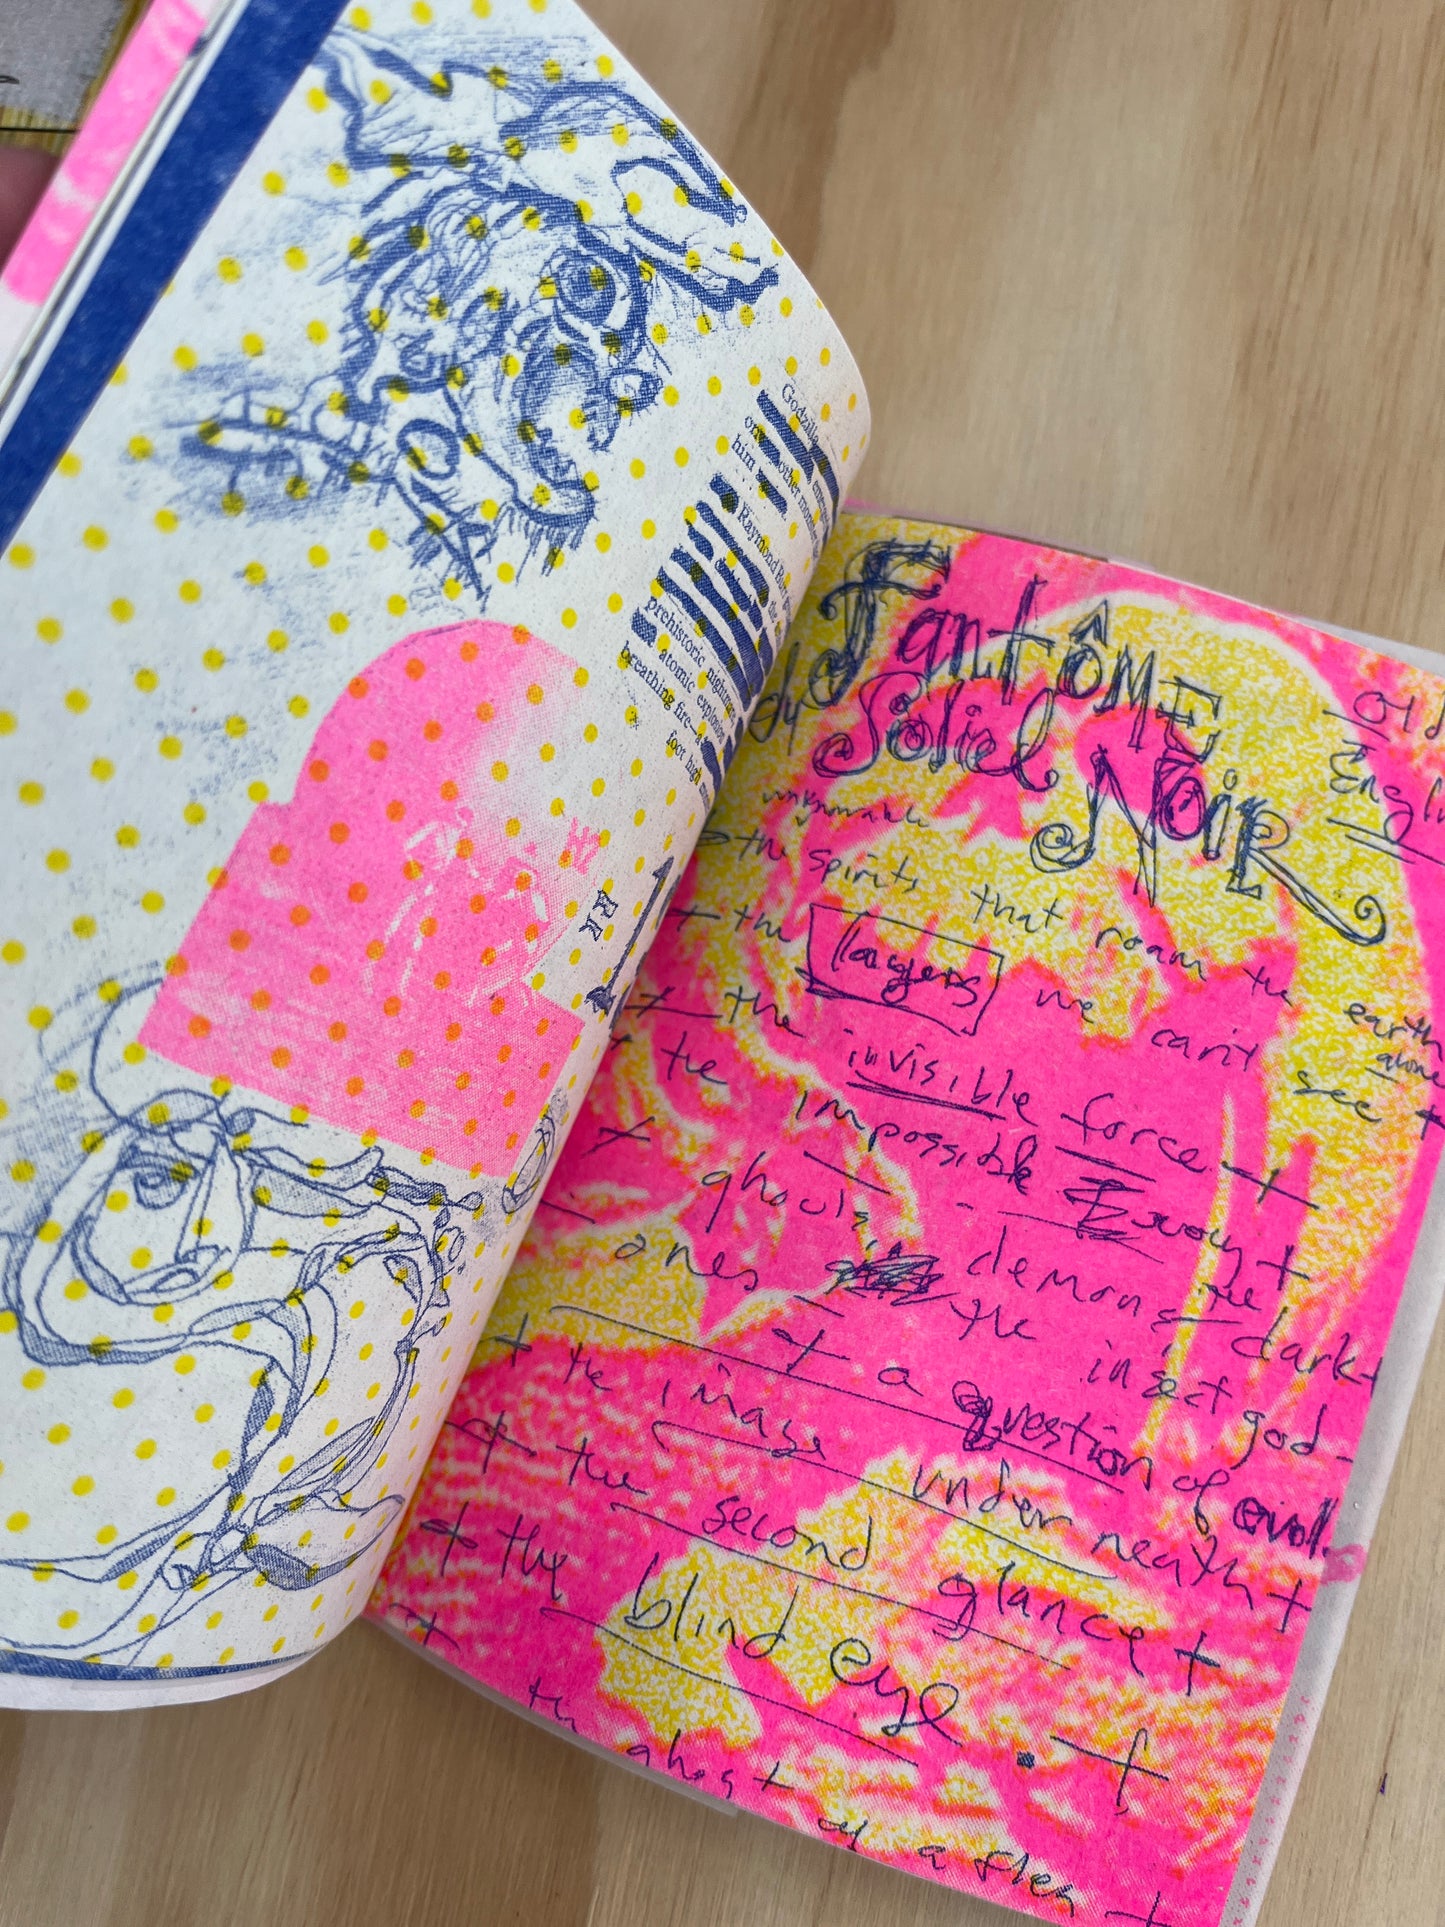 Godzilla
on other
him
Raymond Bur
the
prehistoric nightmare
atomic explosion
breathing fire—a
foot high
Fantôme
Soliel Noir
English
unknowable
the spirits that roam the earth
alone
+ the layers we can't see +
+ the invisible force +
+ the impossible +
+ ghouls, demons, the dark
ones the insect god
+ a question of evil.
+ the image underneath +
+ the second glance +
+ the blind eye. +
+ th ghost of a